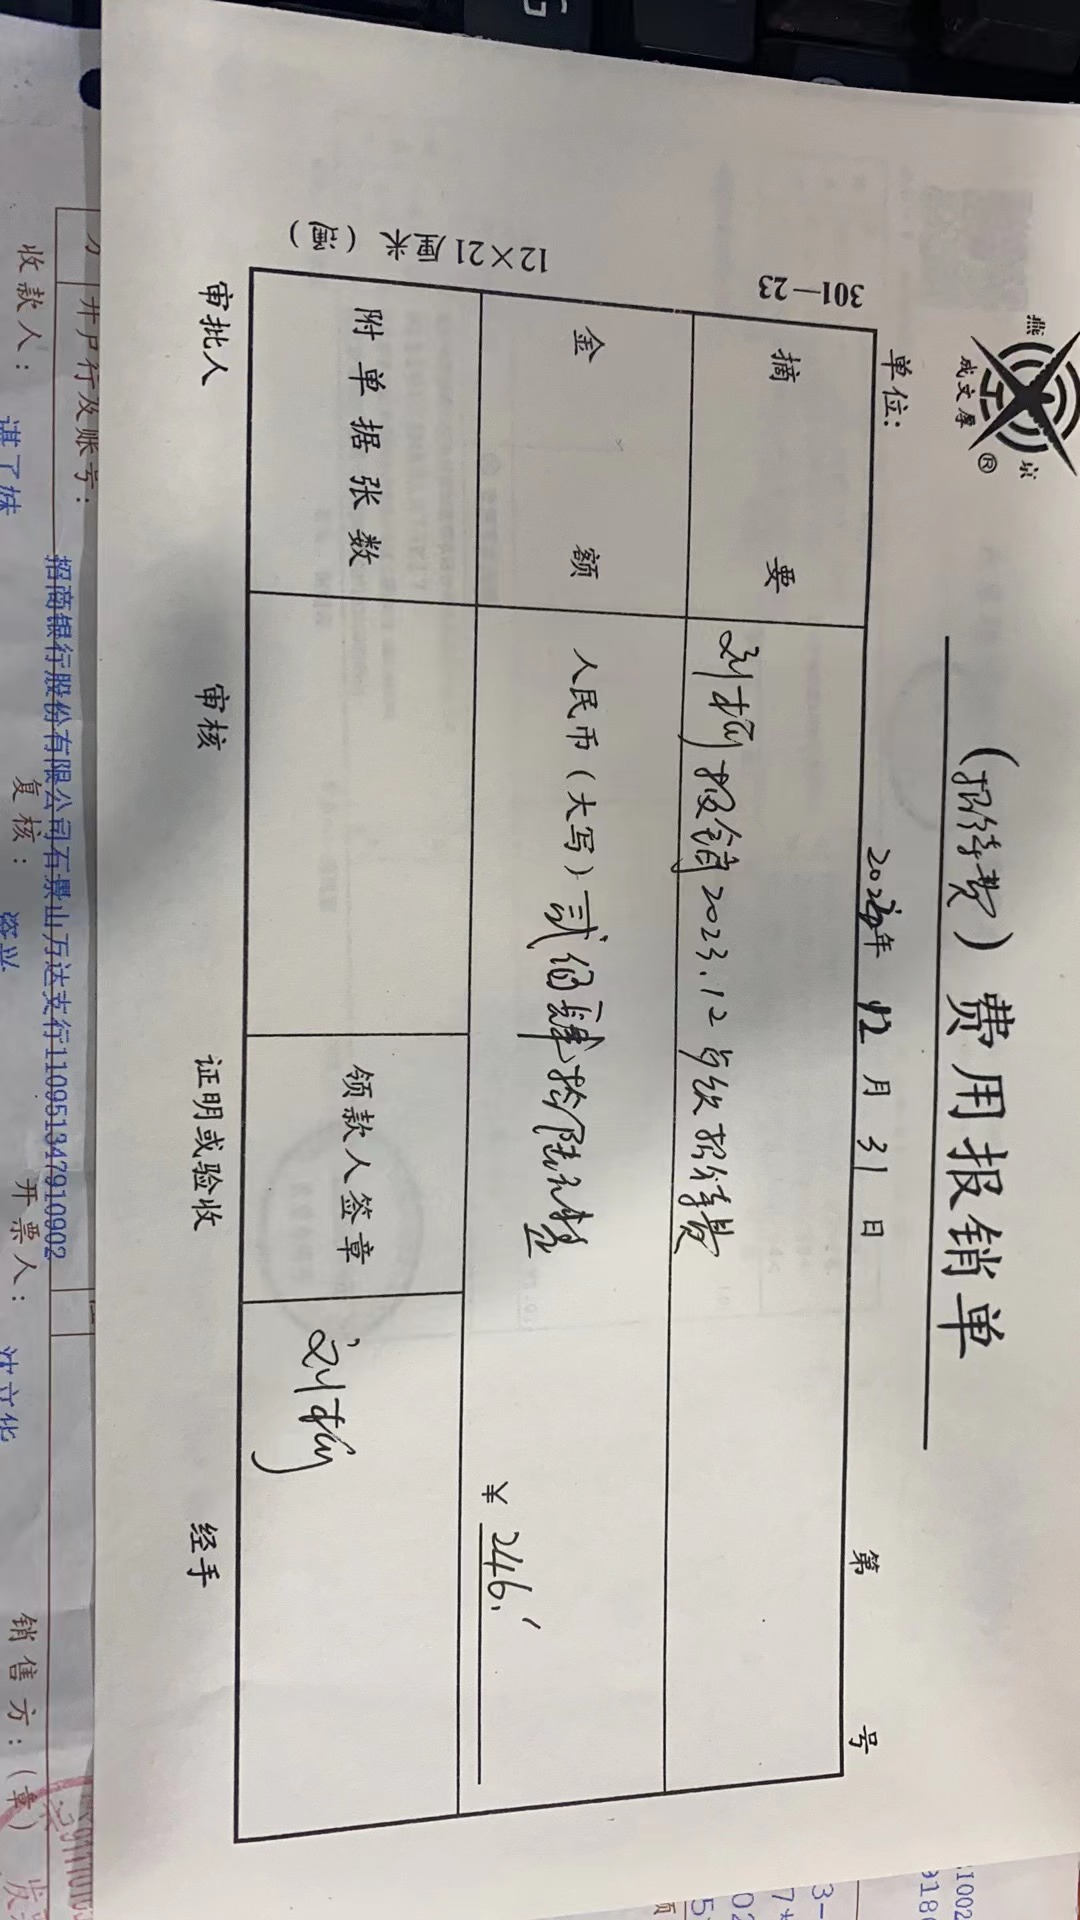 燕
京
成文厚
®
（招待费）费用报销单
单位：
2023年 12 月 31 日
第 号
301—23
摘 要
刘 报销2023.12 招待费
金 额
人民币（大写）贰佰肆拾陆元整
¥ 246.
附单据张数
领款人签章
刘
审批人 审核 证明或验收 经手
12×21厘米
开户行及账号：
招商银行股份有限公司石景山万达支行110951347910902
收款人：
复核：
开票人：
销售方：（章）